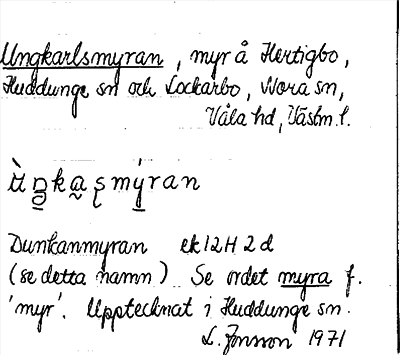 Ungkarlsmyran, myr å Hertigbo,
Huddunge sn och Lockarbo, Nora sn,
Våla hd, Västm. l.
ù̀ŋ̠ka̰ʂmý̠ran
Dunkanmyran ek 12H 2d
(se detta namn) Se ordet myra f.
'myr'. Upptecknat i Huddunge sn.
L. Jonsson 1971